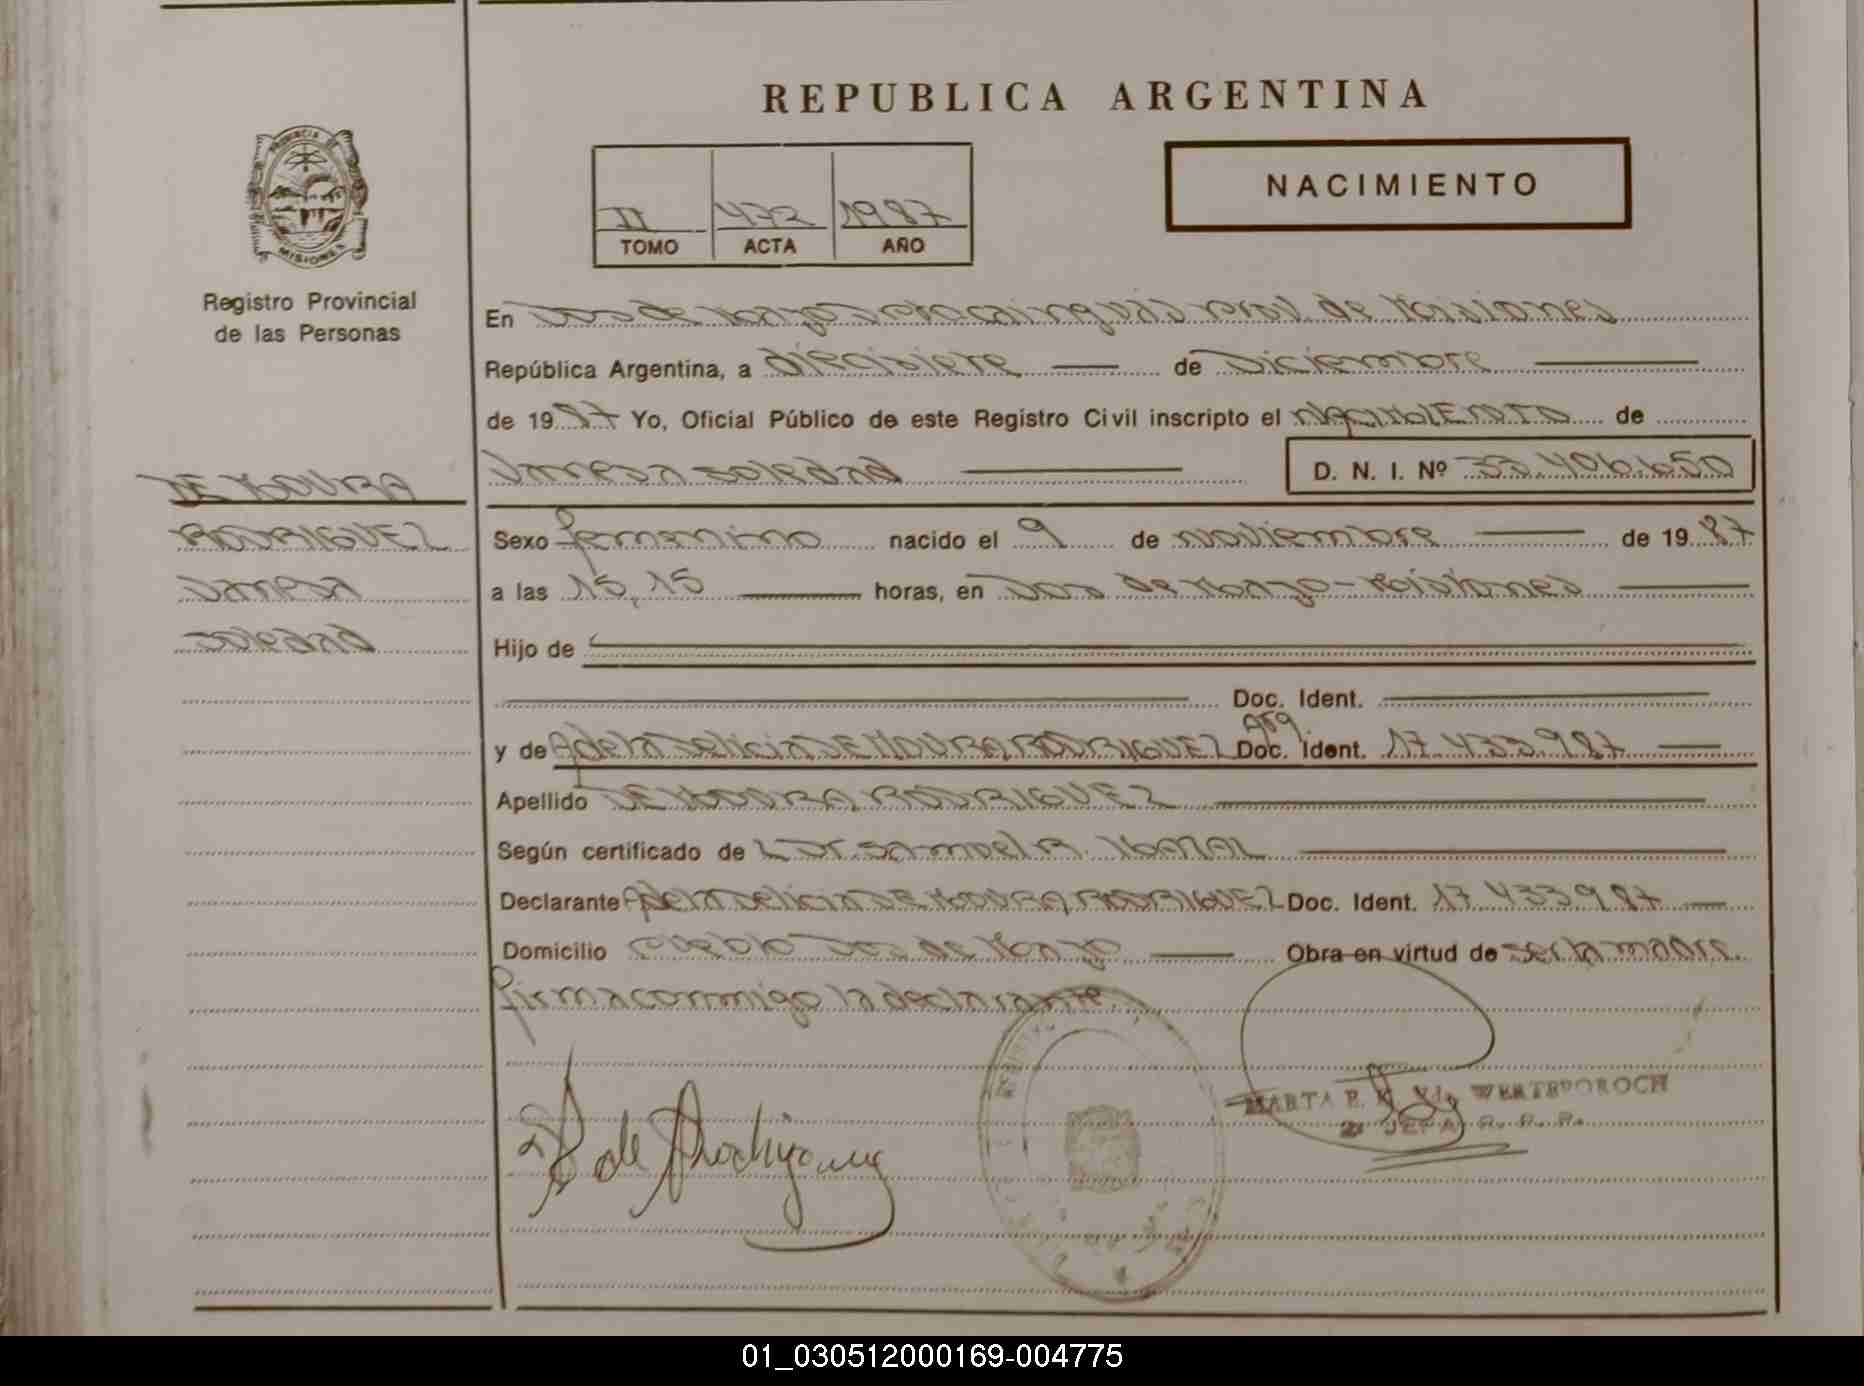 REPUBLICA ARGENTINA
PROVINCIA DE
MISIONES
Registro Provincial
de las Personas
II 472 1987
TOMO ACTA AÑO
NACIMIENTO
En Dos de Mayo Dpto Cainguás Prov. de Misiones
República Argentina, a diecisiete de Diciembre
de 1987 Yo, Oficial Público de este Registro Civil inscripto el NACIMIENTO de
Vanesa Soledad D. N. I. Nº 33.406.650
DE MOURA
RODRIGUEZ
Vanesa
Soledad
Sexo femenino nacido el 9 de noviembre de 1987
a las 15,15 horas, en Dos de Mayo - Misiones
Hijo de
Doc. Ident.
y de Adela Delicia DE MOURA RODRIGUEZ Doc. Ident. Arg. 17.433.987
Apellido DE MOURA RODRIGUEZ
Según certificado de L Dr. Samuel R.
Declarante Adela Delicia DE MOURA RODRIGUEZ Doc. Ident. 17.433.987
Domicilio Pueblo Dos de Mayo Obra en virtud de ser la madre.
firma conmigo la declarante.
de Rodriguez
MARTA E. WERTEPOROCH
JEFA R. P. P.
01_030512000169-004775